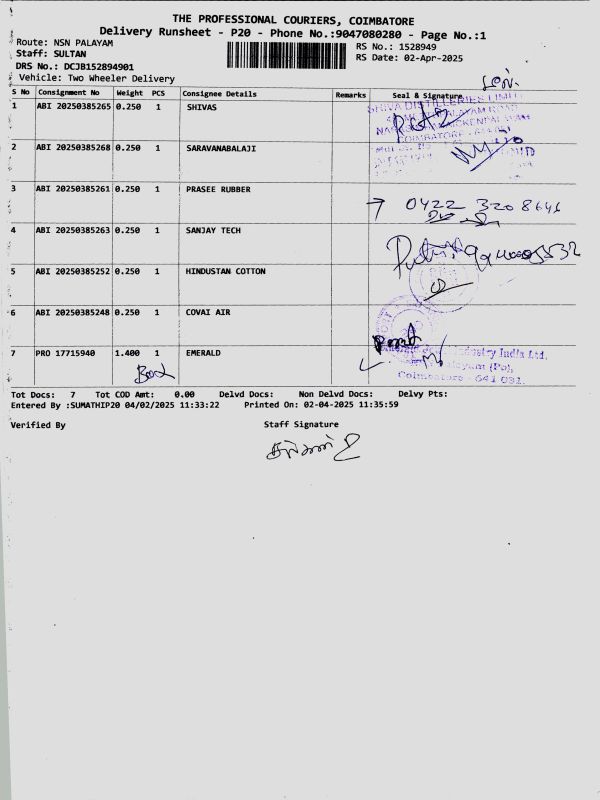 THE PROFESSIONAL COURIERS, COIMBATORE
Delivery Runsheet - P20 - Phone No.:9047080280 - Page No.:1
Route: NSN PALAYAM
RS No.: 1528949
Staff: SULTAN
RS Date: 02-Apr-2025
DRS No.: DCJB152894901
Vehicle: Two Wheeler Delivery
S No Consignment No Weight PCS Consignee Details Remarks Seal & Signature
1 ABI 20250385265 0.250 1 SHIVAS
SHIVA DISTILLERIES LIMITED
COIMBATORE
2 ABI 20250385268 0.250 1 SARAVANABALAJI
3 ABI 20250385261 0.250 1 PRASEE RUBBER
0422 320 8646
4 ABI 20250385263 0.250 1 SANJAY TECH
5 ABI 20250385252 0.250 1 HINDUSTAN COTTON
6 ABI 20250385248 0.250 1 COVAI AIR
7 PRO 17715940 1.400 1 EMERALD
Industry India Ltd.
(Po),
Coimbatore - 641 031.
Box
Tot Docs: 7 Tot COD Amt: 0.00 Delvd Docs: Non Delvd Docs: Delvy Pts:
Entered By :SUMATHIP20 04/02/2025 11:33:22 Printed On: 02-04-2025 11:35:59
Verified By Staff Signature